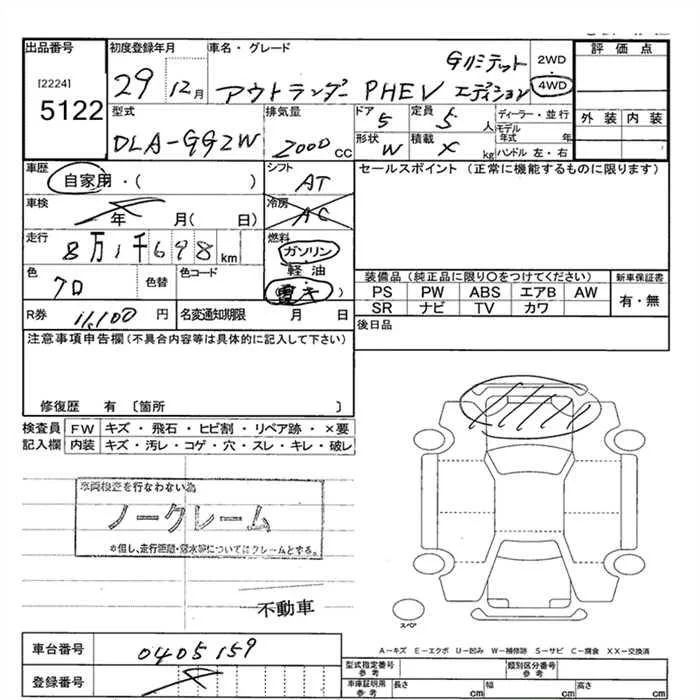 出品番号 初度登録年月 車名・グレード 評価点
[2224] 29 12月 アウトランダー PHEV Gリミテット エディション 2WD 4WD
5122 型式 排気量 ドア 定員 ディーラー・並行 外装 内装
DLA-GG2W 2000 CC 5 5人 モデル年式 年
形状 W 積載 X kg ハンドル 左・右
車歴 自家用・( ) シフト AT セールスポイント (正常に機能するものに限ります)
車検 年 月( 日) 冷房 AC
走行 8万1千698km 燃料 ガソリン
軽油
色 クロ 色替 色コード 電キ )
装備品(純正品に限り〇をつけてください) 新車保証書
PS PW ABS エアB AW 有・無
SR ナビ TV カワ
R券 11,100 円 名変通知期限 月 日 後日品
注意事項申告欄(不具合内容等は具体的に記入して下さい)
修復歴 有 〔箇所 〕
検査員 FW キズ・飛石・ヒビ割・リペア跡・×要
記入欄 内装 キズ・汚レ・コゲ・穴・スレ・キレ・破レ
車両検査を行なわない為
ノークレーム
不動車
スペア
A-キズ E-エクボ U-凹み W-補修跡 S-サビ C-腐食 XX-交換済
車台番号 0405159
登録番号
型式指定番号 参考 類別区分番号 参考
車庫証明用 参考 長さ cm 幅 cm 高さ cm